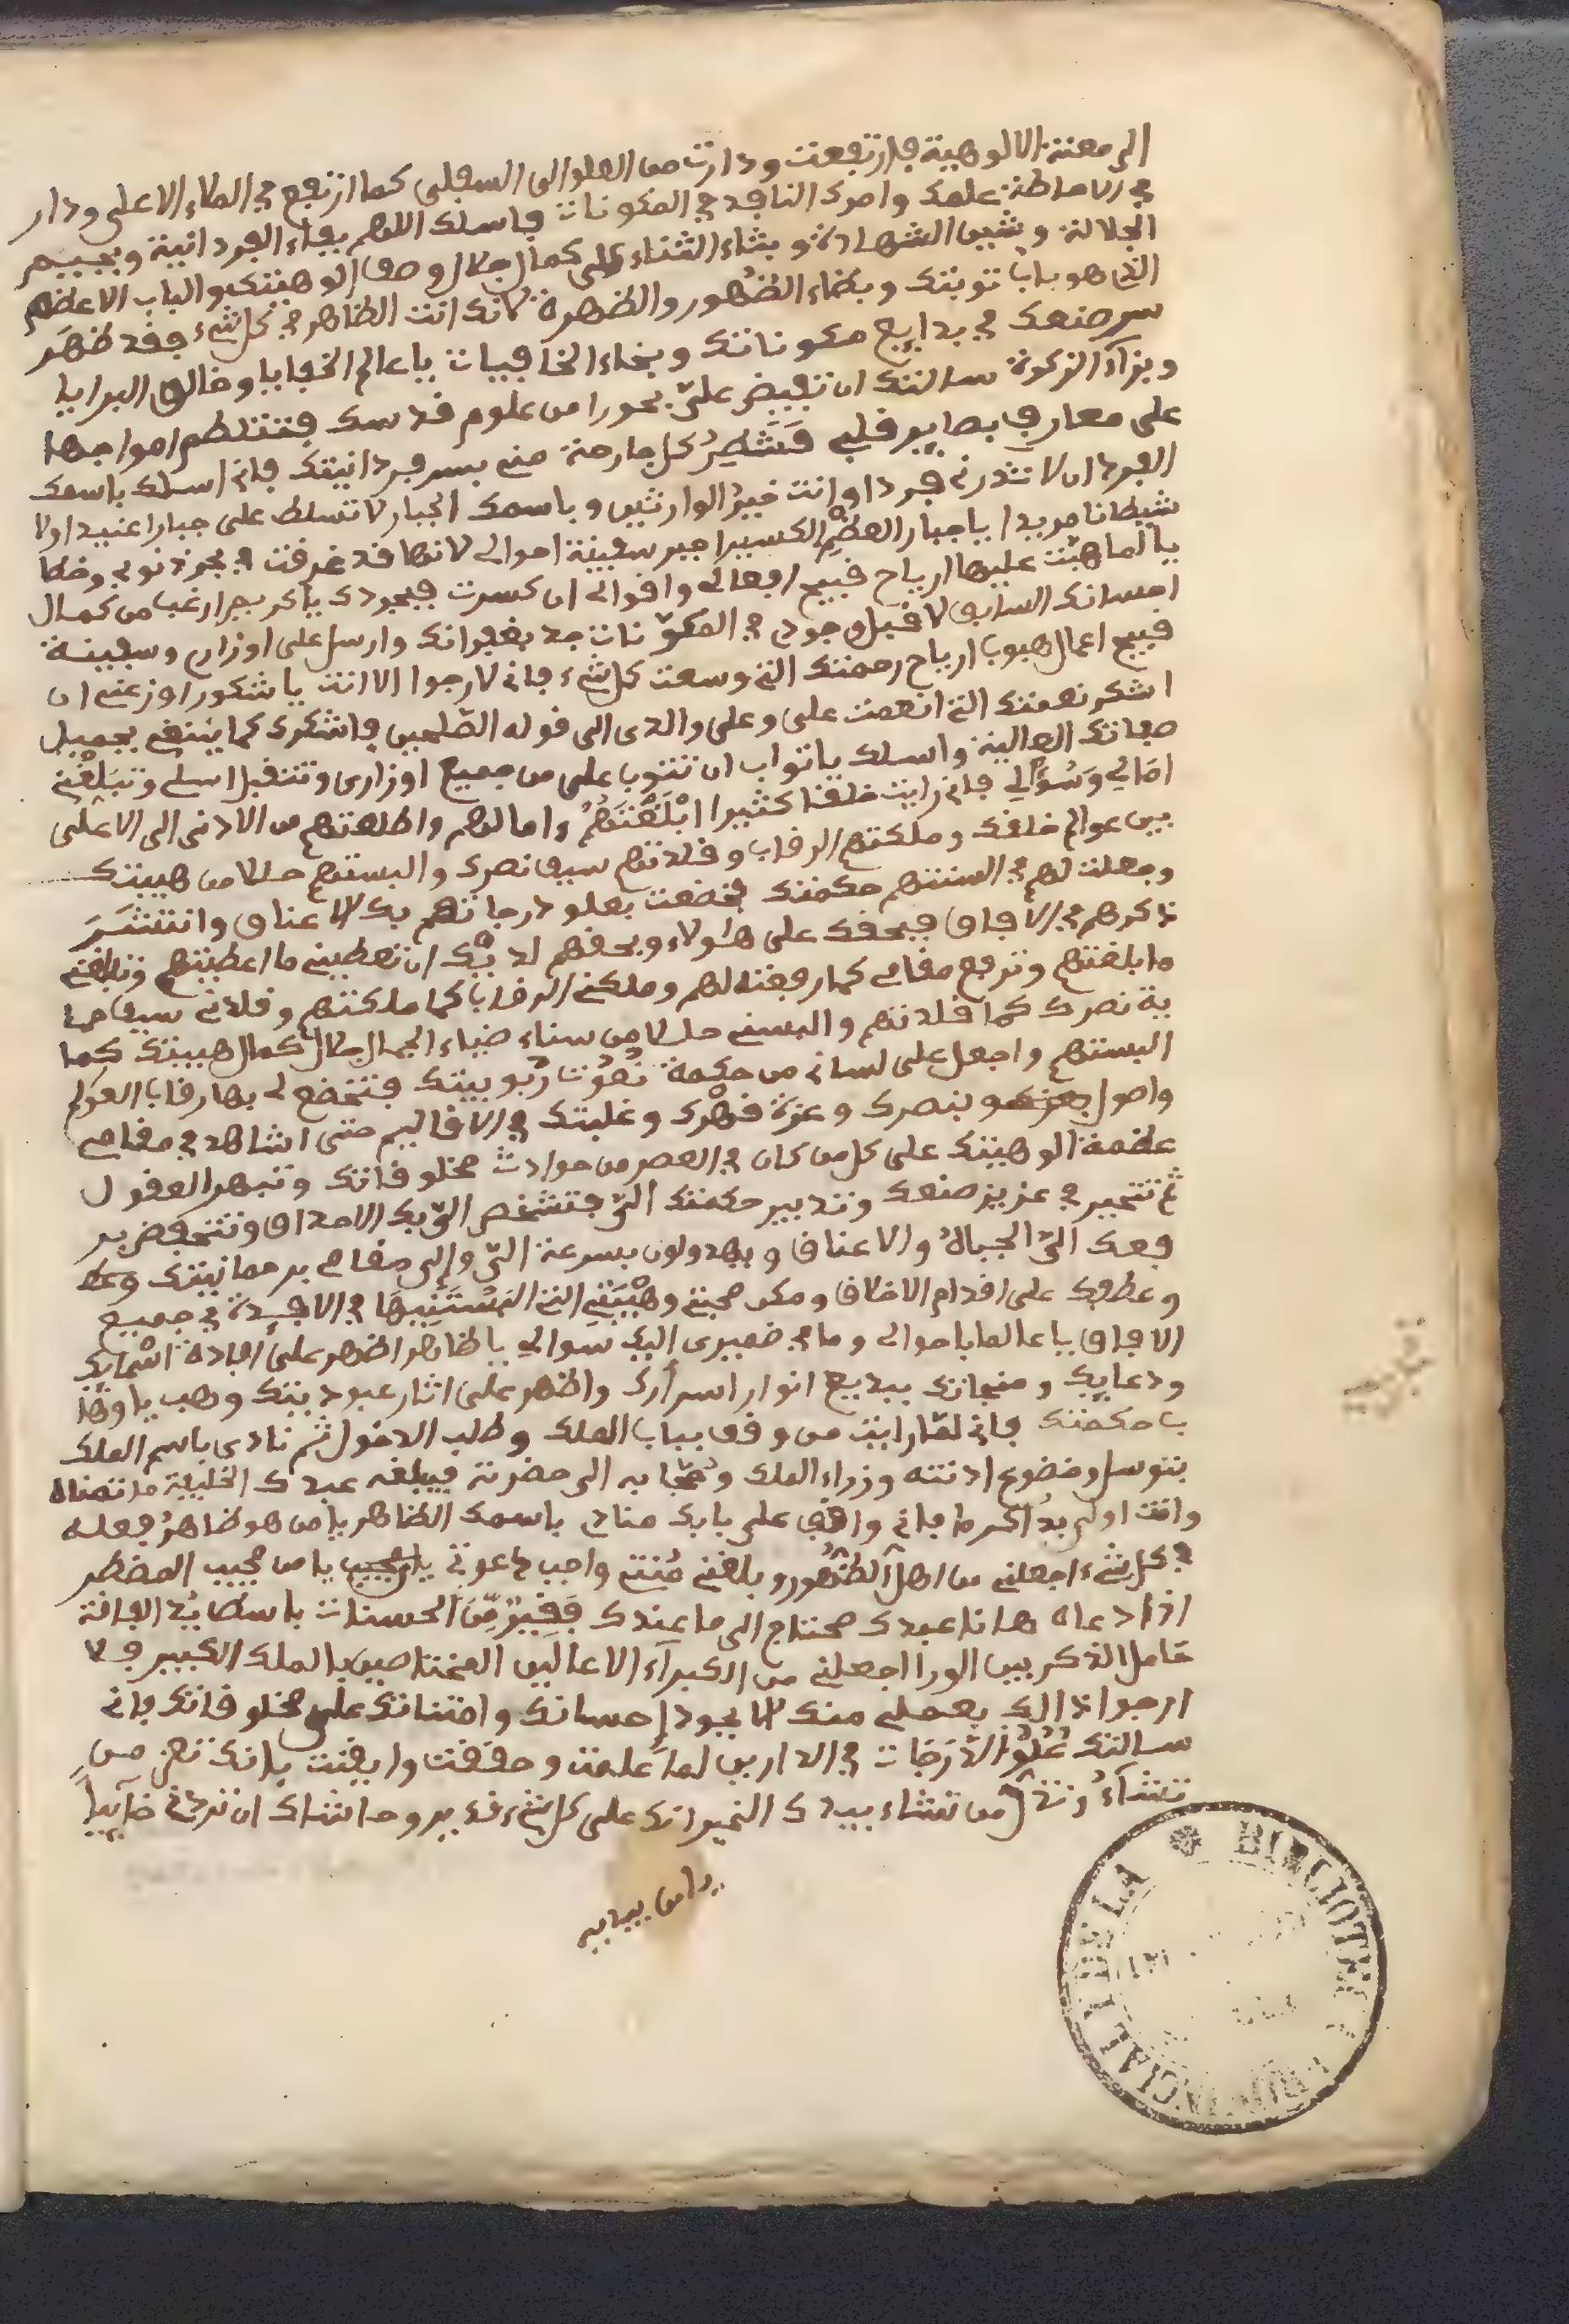 الى معتة الالوهية فارتفعت ودارت من العلو الى السفلى كما ارتفع في الملاء الاعلى ودار
في الاحاطة علمك وامرك النافد في المكونات فاسلك اللهم بفاء الفردانية وبجيم
الجلالة وشين الشهادة وبثاء الثناء على كمال جلال وصف الوهيتك والباب الاعظم
التي هو باب توبتك وبظاء الظهور والظهرة لانك انت الظاهر في كل شيء فقد ظهر
سر صنعك في بدايع مكوناتك وبخاء الخافيات يا عالم الخفايا وخالق البرايا
وبزاء الزكوة سالتك ان تفيض علي بحورا من علوم قدسك فتتلطم امواجها
على معارف بصاير قلبي فتطير كل جارحة مني بسر فردانيتك فاني اسلك باسمك
الفرد ان لا تذرني فردا وانت خير الوارثين وباسمك الجبار لا تسلط على جبارا عنيدا ولا
شيطانا مريدا يا جبار العظم الكسير اجبر سفينة احوالي لانها قد غرفت في بحر ذنوبي وخطا
يا لما هبت عليها ارياح قبيح افعالي واقوالي ان كسرت فبجودك يا كريم ارغب من كمال
احسانك السابق لا قبل وجودي في المكونات جد بغفرانك وارسل على اوزاري وسفينة
قبيح اعمال هبوب ارياح رحمتك التي وسعت كل شيء فاني لا رجوا الا انت يا شكور اوزعني ان
اشكر نعمتك التي انعمت علي وعلى والدي الى قوله الصلحين فاشكرك كما ينبغي بجميل
صفاتك العالية واسلك يا تواب ان تتوب علي من جميع اوزاري وتتقبل اسلي وتبلغني
امالي وسؤالي فاني رايت خلقا كثيرا ابلغتهم وامالهم واطلعتهم من الادنى الى الاعلى
بين عوالم خلقك وملكتهم الرقاب وقلدتهم سيف نصرك والبستهم حللا من هيبتك
وجعلت لهم في السنتهم حكمتك فخضعت بعلو درجاتهم بك الاعناق وانتشر
ذكرهم في الافاق فبحقك على هئولاء وبحقهم لديك ان تعطيني ما اعطيتهم وتبلغني
ما بلغتهم وترفع مقامي كما رفعته لهم وملكني الرقاب كما ملكتهم وقلدني سيف حما
ية نصرك كما قلدتهم والبسني حللا من سناء ضياء الجمال جلال كمال هيبتك كما
البستهم واجعل على لساني من حكمة نعوت ربوبيتك فتخضع لي بها رقاب العوالم
واصول بنصرك وعزة قهرك وغلبتك في الاقاليم حتى اشاهد في مقامي
عظمة الوهيتك على كل من كان في العصر من حوادث مخلوقاتك وتبهر العقول
ثم تتحير في عزيز صنعك وتدبير حكمتك التي فتشخص الي بك الاحداق وتنخفض بر
فعك الي الجبال والاعناق ويهدولون بسرعة الي والى مقامي برحمانيتك وعط
وعطفك على اقدام الاخلاق ومكن محبتي وهيبتي التي البستنيها في الافيدة في جميع
الافاق يا عالما باحوالي وما في ضميري اليك سوالي يا ظاهر اظهر علي افادة اسمايك
ودعايك ومنجاتك ببديع انوار اسرارك واظهر علي اثار عبوديتك وهب يا وها
ب حكمتك فاني لما رايت من وقف بباب الملك وطلب الدخول ثم نادى باسم الملك
بتوسل وخضوع ادنته وزراء الملك وحجابه الى حضرته فيبلغه عبدك الخليفة ما تمناه
وانت اولى بذا كرما فاني واقف على بابك مناد باسمك الظاهر يا من هو ظاهر فعله
في كل شيء اجعلني من اهل الظهور وبلغني منتي واجب دعوتي يا مجيب يا من يجيب المضطر
اذا دعاه ها انا عبدك محتاج الى ما عندك فقير من الحسنات باسط يد الفاقة
خامل الذكر بين الورا اجعلني من الكبراء الاعالين المختاصين بالملك الكبير فلا
ارجوا ذالك بعملي منك الا بجود احسانك وامتنانك على مخلوقاتك فاني
سالتك علو الدرجات في الدارين لما علمت وحققت وايقنت بانك تعز من
تشاء وتذل من تشاء بيدك الخير انك على كل شيء قدير وحاشاك ان تردني خايبا
BIBLIOTE
PROVINCIAL I DE LA